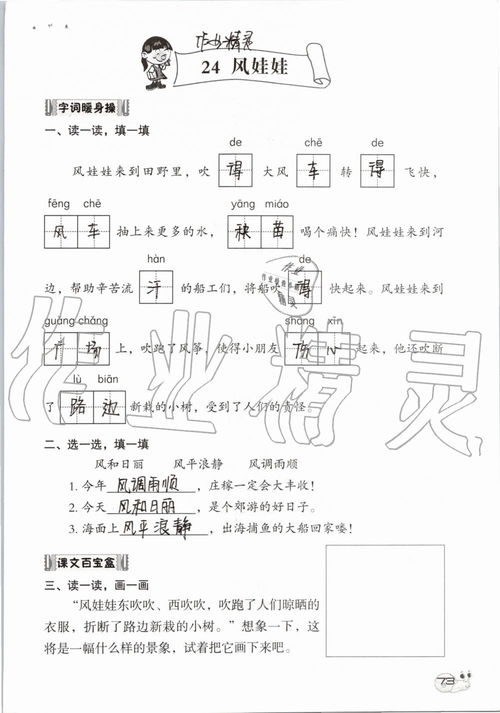 作业精灵
24 风娃娃
字词暖身操
一、读一读，填一填
de chē de
风娃娃来到田野里，吹 得 大风 车 转 得 飞快，
fēng chē yāng miáo
风 车 抽上来更多的水， 秧 苗 喝个痛快！风娃娃来到河
hàn
边，帮助辛苦流 汗 的船工们，将船吹 得 快起来。风娃娃来到
guǎng chǎng shāng xīn
广 场 上，吹跑了风筝，使得小朋友 伤 心 起来，他还吹断
lù biān
了 路 边 新栽的小树，受到了人们的责怪。
二、选一选，填一填
风和日丽 风平浪静 风调雨顺
1. 今年 风调雨顺 ，庄稼一定会大丰收！
2. 今天 风和日丽 ，是个郊游的好日子。
3. 海面上 风平浪静 ，出海捕鱼的大船回家喽！
课文百宝盒
三、读一读，画一画
“风娃娃东吹吹、西吹吹，吹跑了人们晾晒的
衣服，折断了路边新栽的小树。”想象一下，这
将是一幅什么样的景象，试着把它画下来吧。
73
作业精灵